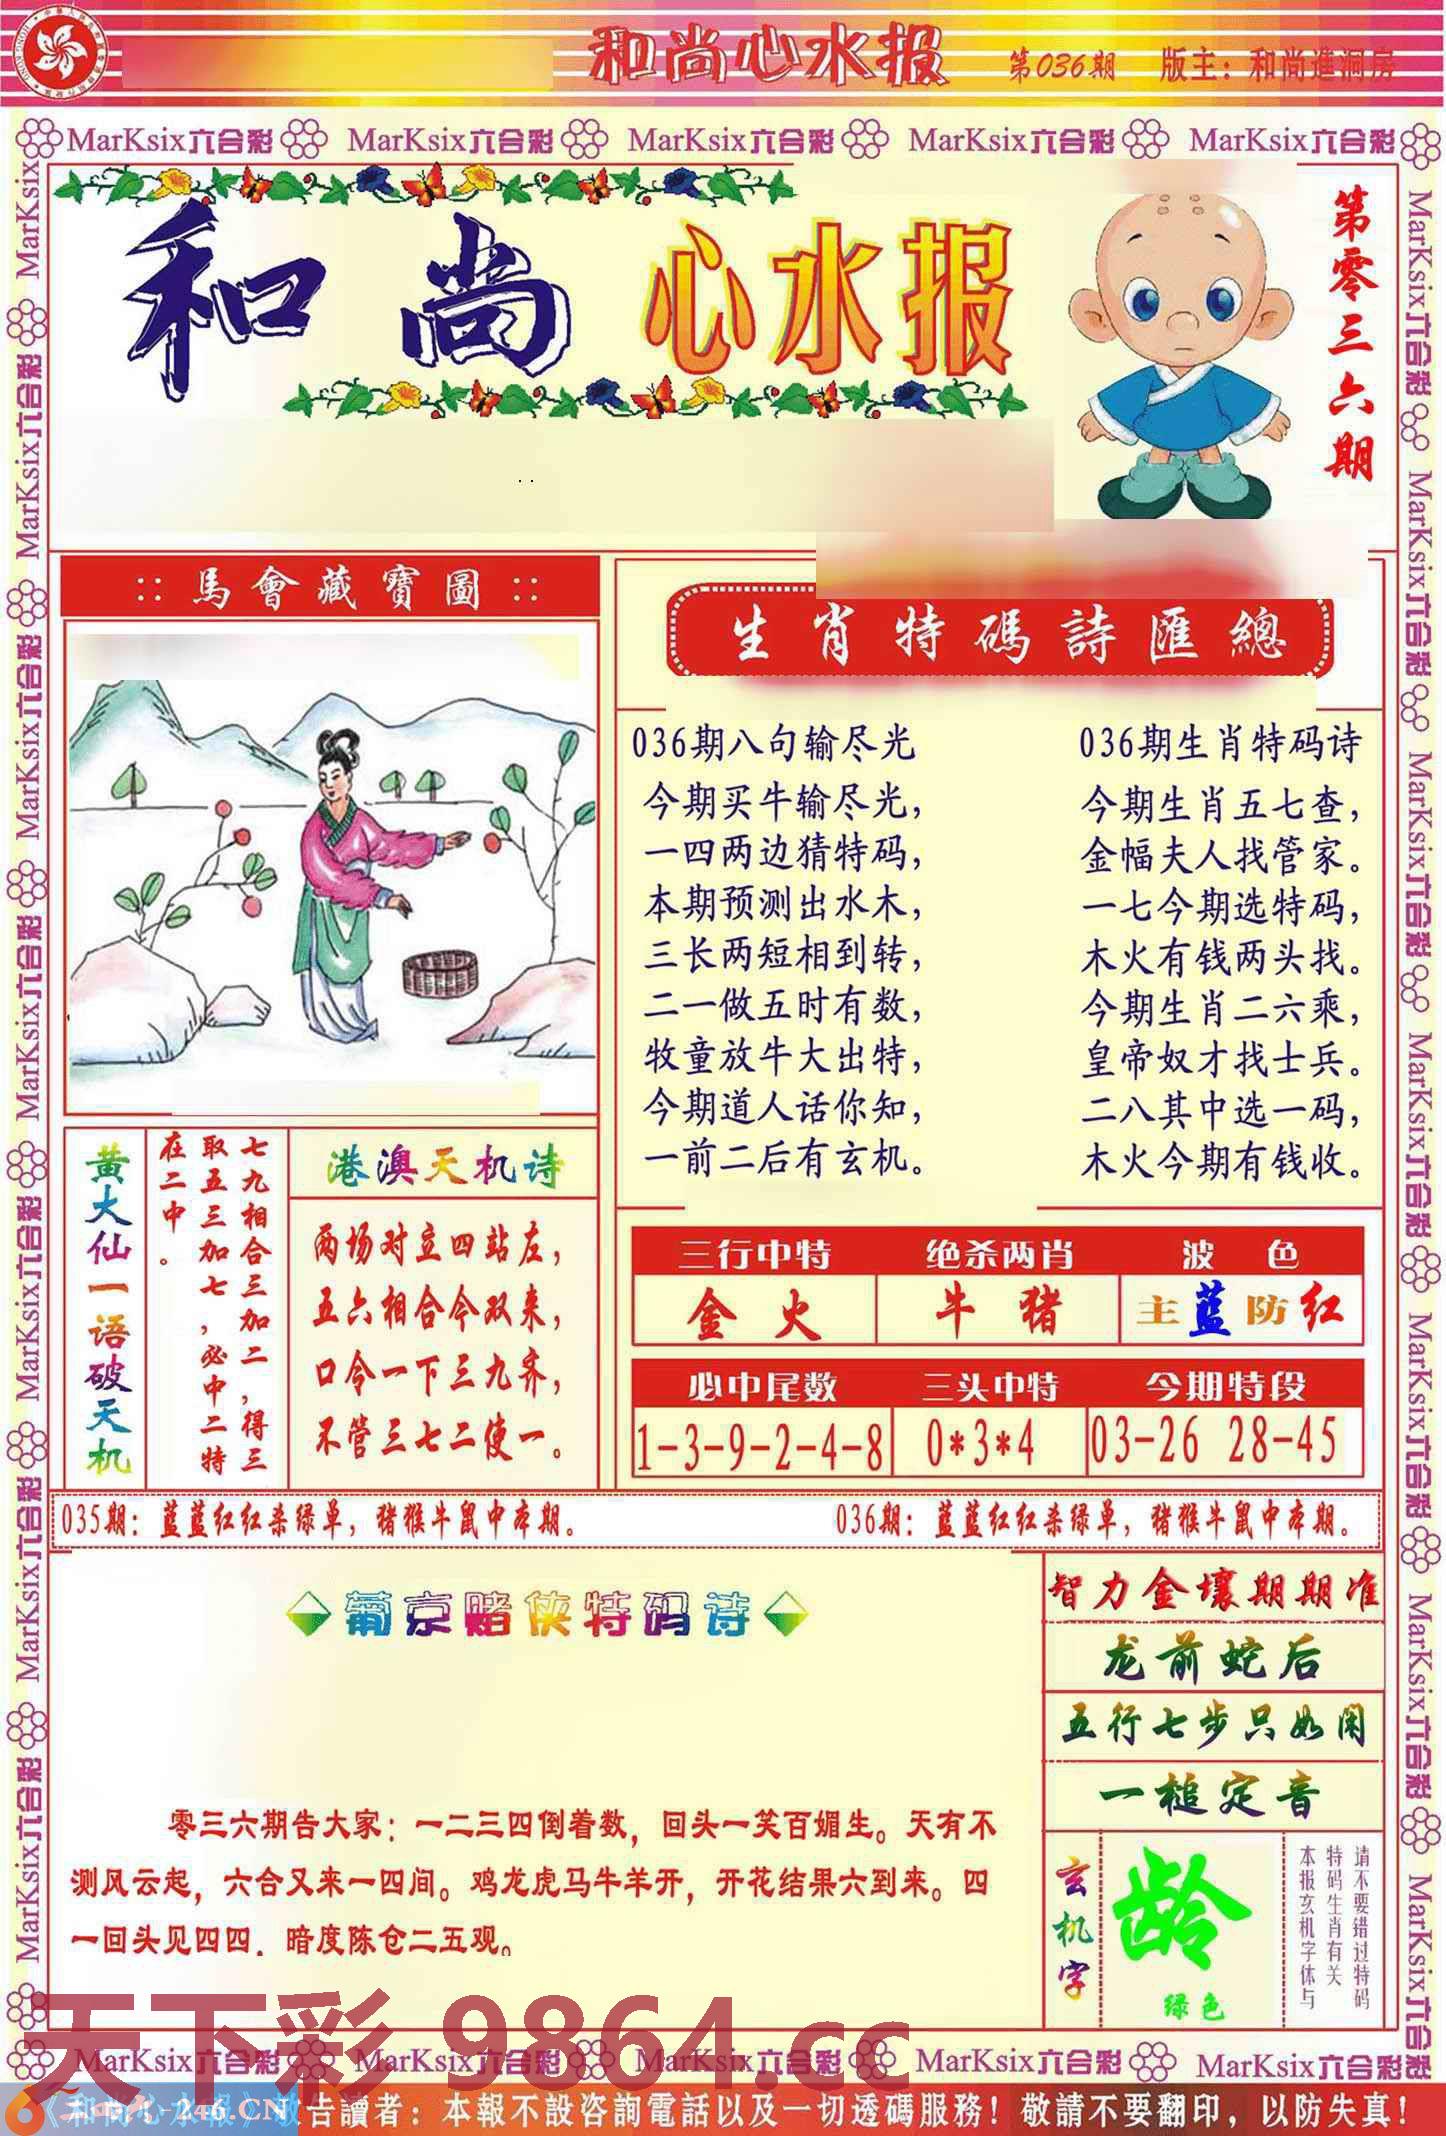 和尚心水报
第036期
版主：和尚進洞房
MarKsix六合彩 MarKsix六合彩 MarKsix六合彩 MarKsix六合彩 MarKsix六合彩
和尚心水报
第零三六期
:: 馬會藏寶圖 ::
生肖特碼詩匯總
036期八句输尽光
今期买牛输尽光，
一四两边猜特码，
本期预测出水木，
三长两短相到转，
二一做五时有数，
牧童放牛大出特，
今期道人话你知，
一前二后有玄机。
036期生肖特码诗
今期生肖五七查，
金幅夫人找管家。
一七今期选特码，
木火有钱两头找。
今期生肖二六乘，
皇帝奴才找士兵。
二八其中选一码，
木火今期有钱收。
黄大仙一语破天机
七九相合三加二，得三
取五三加七，必中二特
在二中。
港澳天机诗
两场对立四站左，
五六相合今双来，
口令一下三九齐，
不管三七二使一。
三行中特 绝杀两肖 波色
金火 牛猪 主蓝防红
必中尾数 三头中特 今期特段
1-3-9-2-4-8 0*3*4 03-26 28-45
035期：蓝蓝红红杀绿单，猪猴牛鼠中本期。
036期：蓝蓝红红杀绿单，猪猴牛鼠中本期。
葡京赌侠特码诗
零三六期告大家：一二三四倒着数，回头一笑百媚生。天有不
测风云起，六合又来一四间。鸡龙虎马牛羊开，开花结果六到来。四
一回头见四四．暗度陈仓二五观。
智力金壤期期准
龙前蛇后
五行七步只如闲
一槌定音
玄机字
龄
绿色
请不要错过特码
特码生肖有关
本报玄机字体与
天下彩 9864.cc
MarKsix六合彩 MarKsix六合彩 MarKsix六合彩 MarKsix六合彩 MarKsix六合彩
246.CN
《和尚心水报》敬告讀者：本報不設咨詢電話以及一切透碼服務！敬請不要翻印，以防失真！